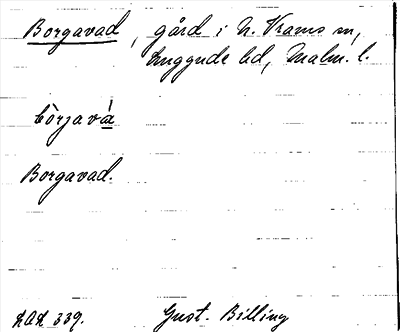 Borgavad, gård i N. Vrams sn,
Luggude hd, Malm. l.
bòrjavá
Borgavad.
LAL 339. Gust. Billing